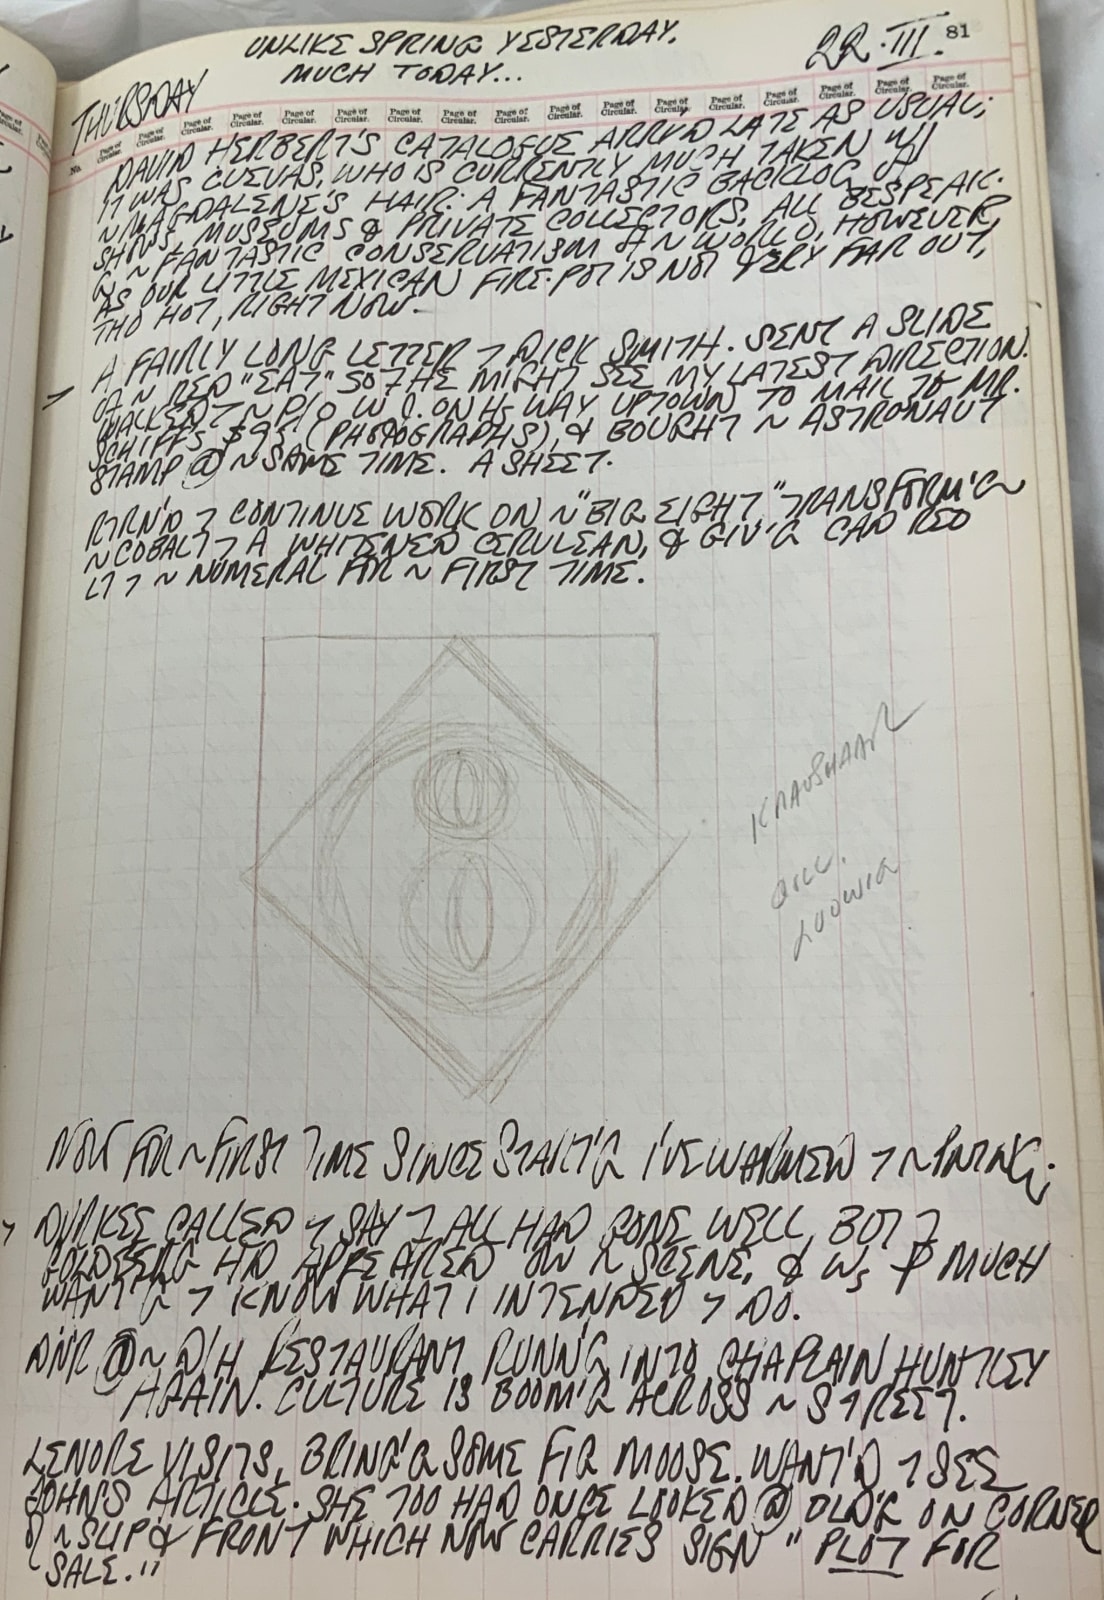 UNLIKE SPRING YESTERDAY.
MUCH TODAY...
22.III.
81
THURSDAY
No.
Page of Circular. Page of Circular. Page of Circular. Page of Circular. Page of Circular. Page of Circular. Page of Circular. Page of Circular. Page of Circular. Page of Circular. Page of Circular. Page of Circular. Page of Circular. Page of Circular. Page of Circular. Page of Circular. Page of Circular.
DAVID HERBERT'S CATALOGUE ARRIV'D LATE AS USUAL;
IT WAS CUEVAS, WHO IS CURRENTLY MUCH TAKEN W/
~ MAGDALENE'S HAIR. A FANTASTIC BACKLOG OF
SHOWS, MUSEUMS & PRIVATE COLLECTORS, ALL BESPEAK-
'G ~ FANTASTIC CONSERVATISM OF ~ WORLD, HOWEVER,
AS OUR LITTLE MEXICAN FIRE-POT IS NOT VERY FAR OUT,
THO HOT, RIGHT NOW.
A FAIRLY LONG LETTER 7 DICK SMITH. SENT A SLIDE
OF ~ RED "EAT" SO 7 HE MIGHT SEE MY LATEST DIRECTION.
WALKED 7 ~ P/O W ON Hs WAY UPTOWN TO MAIL TO MR.
SCHIFFS $95 (PHOTOGRAPHS), & BOUGHT ~ ASTRONAUT
STAMP @ ~ SAME TIME. A SHEET.
RTRN'D 7 CONTINUE WORK ON ~ "BIG EIGHT" TRANSFORM'G
~ COBALT 7 A WHITENED CERULEAN, & GIV'G CAD RED
LT 7 ~ NUMERAL FOR ~ FIRST TIME.
KRAUSHAAR
GILL.
LUDWIG
NOW FOR ~ FIRST TIME SINCE START'G I'VE WARMED 7 ~ PNTNG.
DURKEE CALLED 7 SAY 7 ALL HAD GONE WELL, BUT 7
HAD APPEARED ON ~ SCENE, & Ws MUCH
WANT'G 7 KNOW WHAT I INTENDED 7 DO.
DINR @ ~ D/H RESTAURANT RUNN'G INTO CHAPLAIN HUNTLEY
AGAIN. CULTURE IS BOOM'G ACROSS ~ STREET.
LENORE VISITS, BRING'G SOME FIG MOOSE. WANT'D 7 SEE
JOHNS ARTICLE. SHE TOO HAD ONCE LOOKED @ BLD'G ON CORNER
OF ~ SLIP & FRONT WHICH NOW CARRIES SIGN "PLOT FOR
SALE."